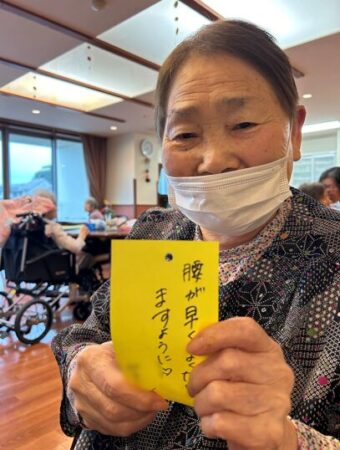 腰が早くよくなり
ますように♡